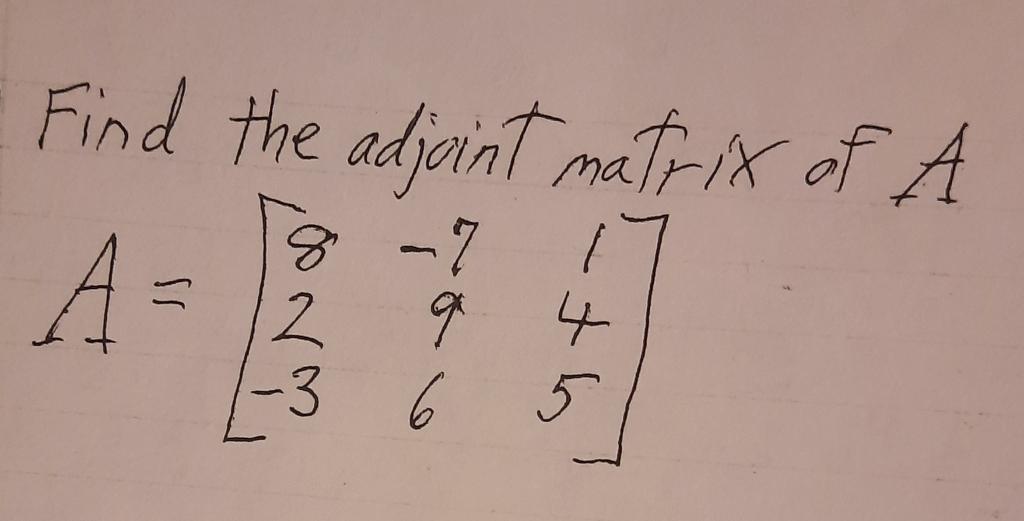 Find the adjoint matrix of A
A = [8 -7 1
2 9 4
-3 6 5]